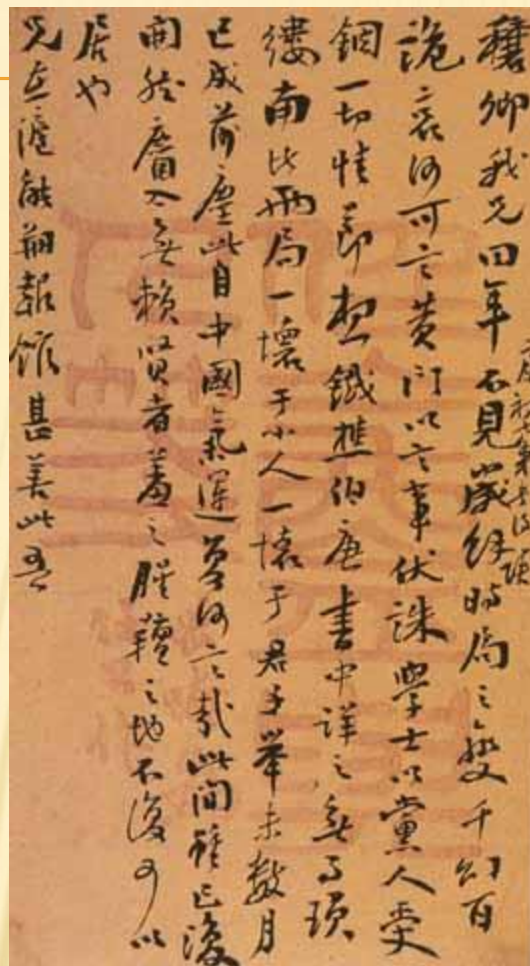 穰卿我兄四年不見歲餘時局之變千幻百
詭哀何可言黃門以言事伏誅學士以黨人受
錮一切情節想鐵樵伯唐書中詳之無事瑣
縷南北兩局一壞于小人一壞于君子舉未數月
已成前塵此自中國氣運何言哉此間雖已復
開然麕入無賴賢者羞之腥羶之地不復可以
居也
兄在滬能報館甚善此吾